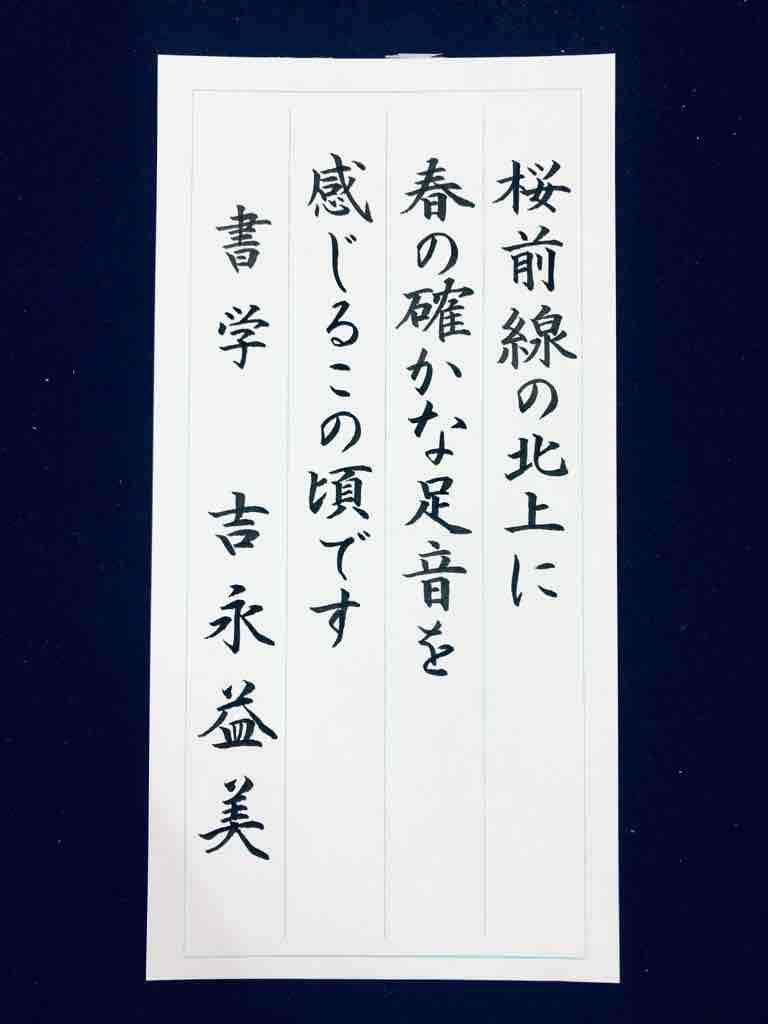 桜前線の北上に
春の確かな足音を
感じるこの頃です
書学 吉永益美